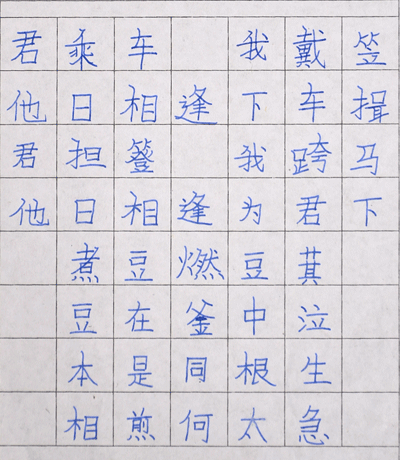 君乘车 我戴笠
他日相逢下车揖
君担簦 我跨马
他日相逢为君下
煮豆燃豆萁
豆在釜中泣
本是同根生
相煎何太急